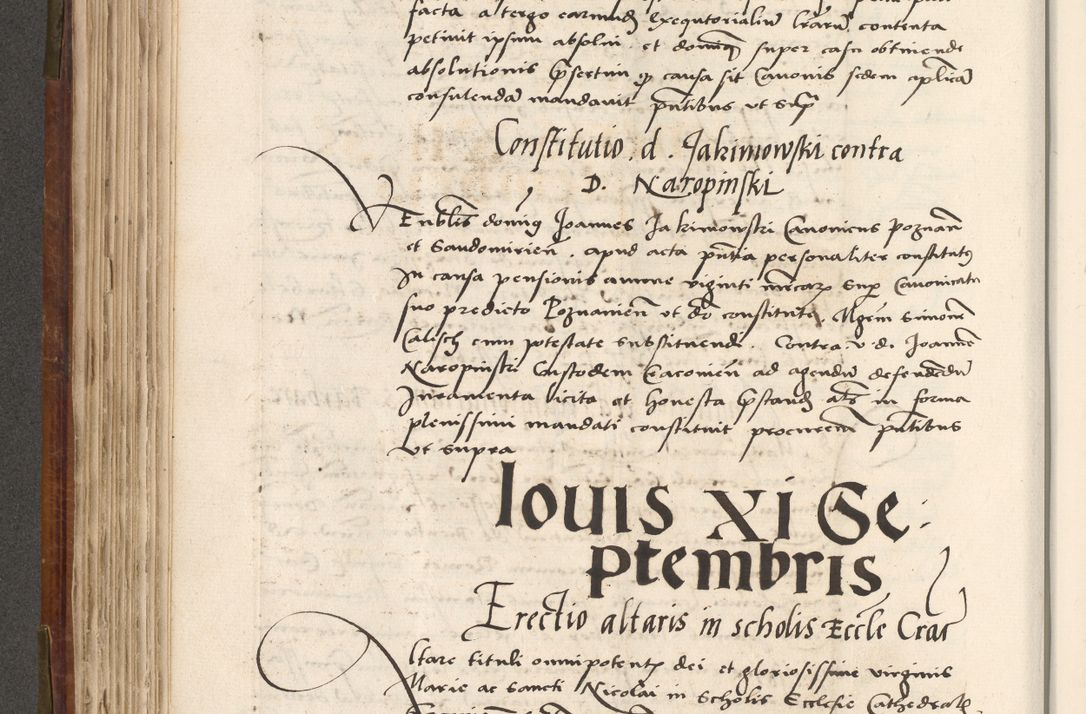 facta a tergo earundẽ Exequtorialiũ lrãrũ contenta
petiuit ipsum absolui et dominũ super casu obtinende
absolutionis p̃sertim q̃ causa sit Canonis sedem aplicã
consulendã mandauit pñtibus vt supᷓ
Constitutio d. Jakimowski contra
D. Naropinski
Venblis dominꝯ Joannes Jakimowski Canonicus Poznañ
et Sandomirieñ. apud acta pñtia personaliter constitutꝯ
In causa pensionis annue viginti mrcarꝝ sup Canonicatu
suo predicto Poznanieñ vt dr̃ constitute. Mgrm Simonem
Calisch cum potestate substituendi. Contra v. d. Joannem
Naropinski Custodem Cracouieñ ad agendũ defendendũ
Juramenta licita et honesta p̃standẽ ac̃ts in forma
plenissimi mandati constituit procuratorẽ pñtibus
vt supra
Iouis XI Se:
ptembris
Erectio altaris in scholis Eccle Crac
ltare tituli omnipotentꝭ dei et gloriosissime virginis
Marie ac Sancti Nicolai in Scholis Ecclesie Cathedralꝭ